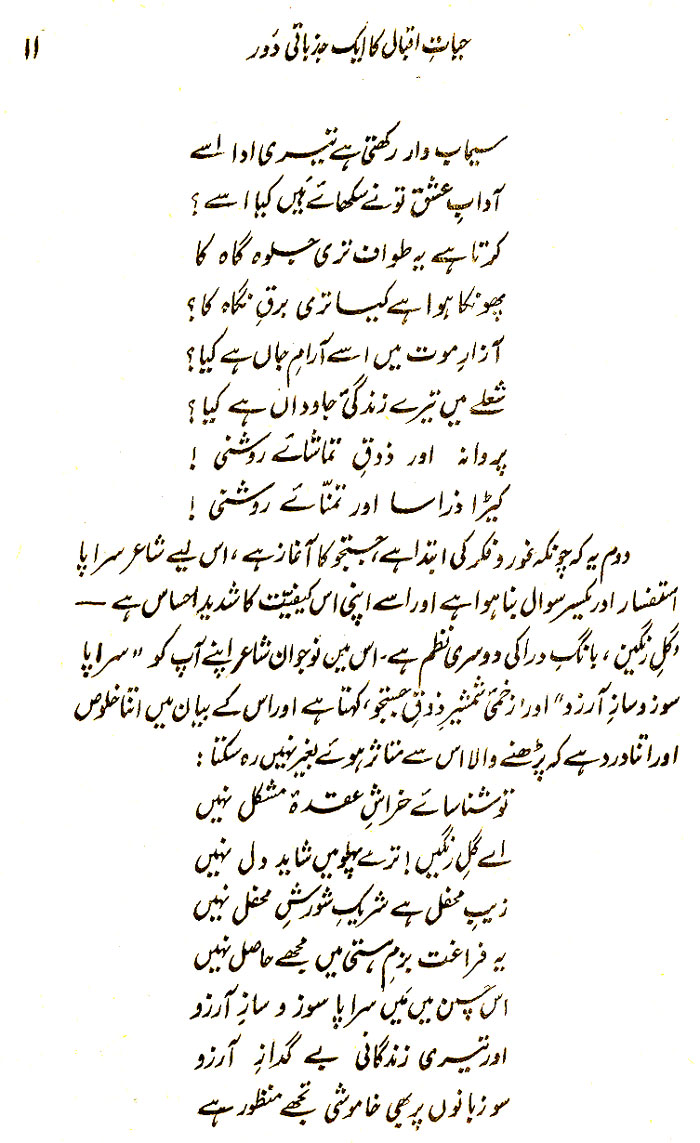 حیاتِ اقبال کا ایک جذباتی دَور ۱۱
سیماب وار رکھتی ہے تیری ادا اسے
آدابِ عشق تو نے سکھائے ہیں کیا اسے؟
کرتا ہے یہ طواف تری جلوہ گاہ کا
پھونکا ہوا ہے کیا تری برقِ نگاہ کا؟
آزارِ موت میں اسے آرامِ جاں ہے کیا؟
شعلے میں تیرے زندگیٔ جاوداں ہے کیا؟
پروانہ اور ذوقِ تماشائے روشنی!
کیڑا ذرا سا اور تمنّائے روشنی!
دوم یہ کہ چونکہ غور و فکر کی ابتدا ہے، جستجو کا آغاز ہے، اس لیے شاعر سراپا
استفسار اور یکسر سوال بنا ہوا ہے اور اسے اپنی اس کیفیّت کا شدید احساس ہے —
'گلِ رنگین'، بانگِ درا کی دوسری نظم ہے۔ اس میں نوجوان شاعر اپنے آپ کو "سراپا
سوز و سازِ آرزو" اور 'زخمیٔ شمشیرِ ذوقِ جستجو' کہتا ہے اور اس کے بیان میں اتنا خلوص
اور اتنا درد ہے کہ پڑھنے والا اس سے متاثر ہوئے بغیر نہیں رہ سکتا:
تو شناسائے خراشِ عقدۂ مشکل نہیں
اے گلِ رنگیں! ترے پہلو میں شاید دل نہیں
زیبِ محفل ہے شریکِ شورشِ محفل نہیں
یہ فراغت بزمِ ہستی میں مجھے حاصل نہیں
اس چمن میں مَیں سراپا سوز و سازِ آرزو
اور تیری زندگانی بے گدازِ آرزو
سو زبانوں پر بھی خاموشی تجھے منظور ہے